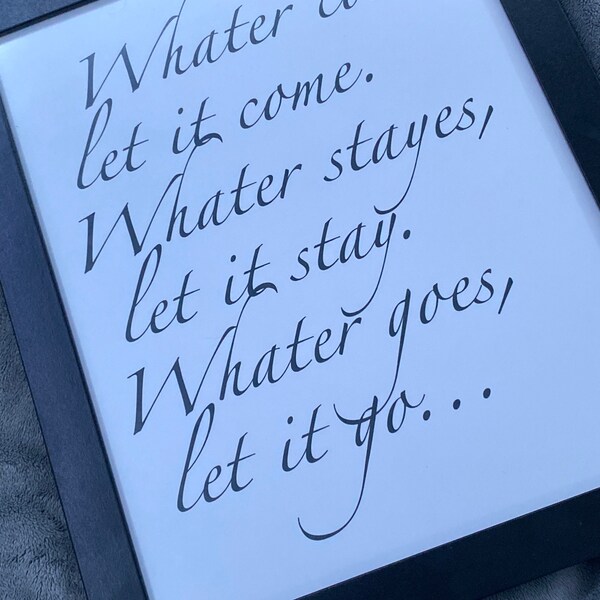 Whater
let it come.
Whater stayes,
let it stay.
Whater goes,
let it go...